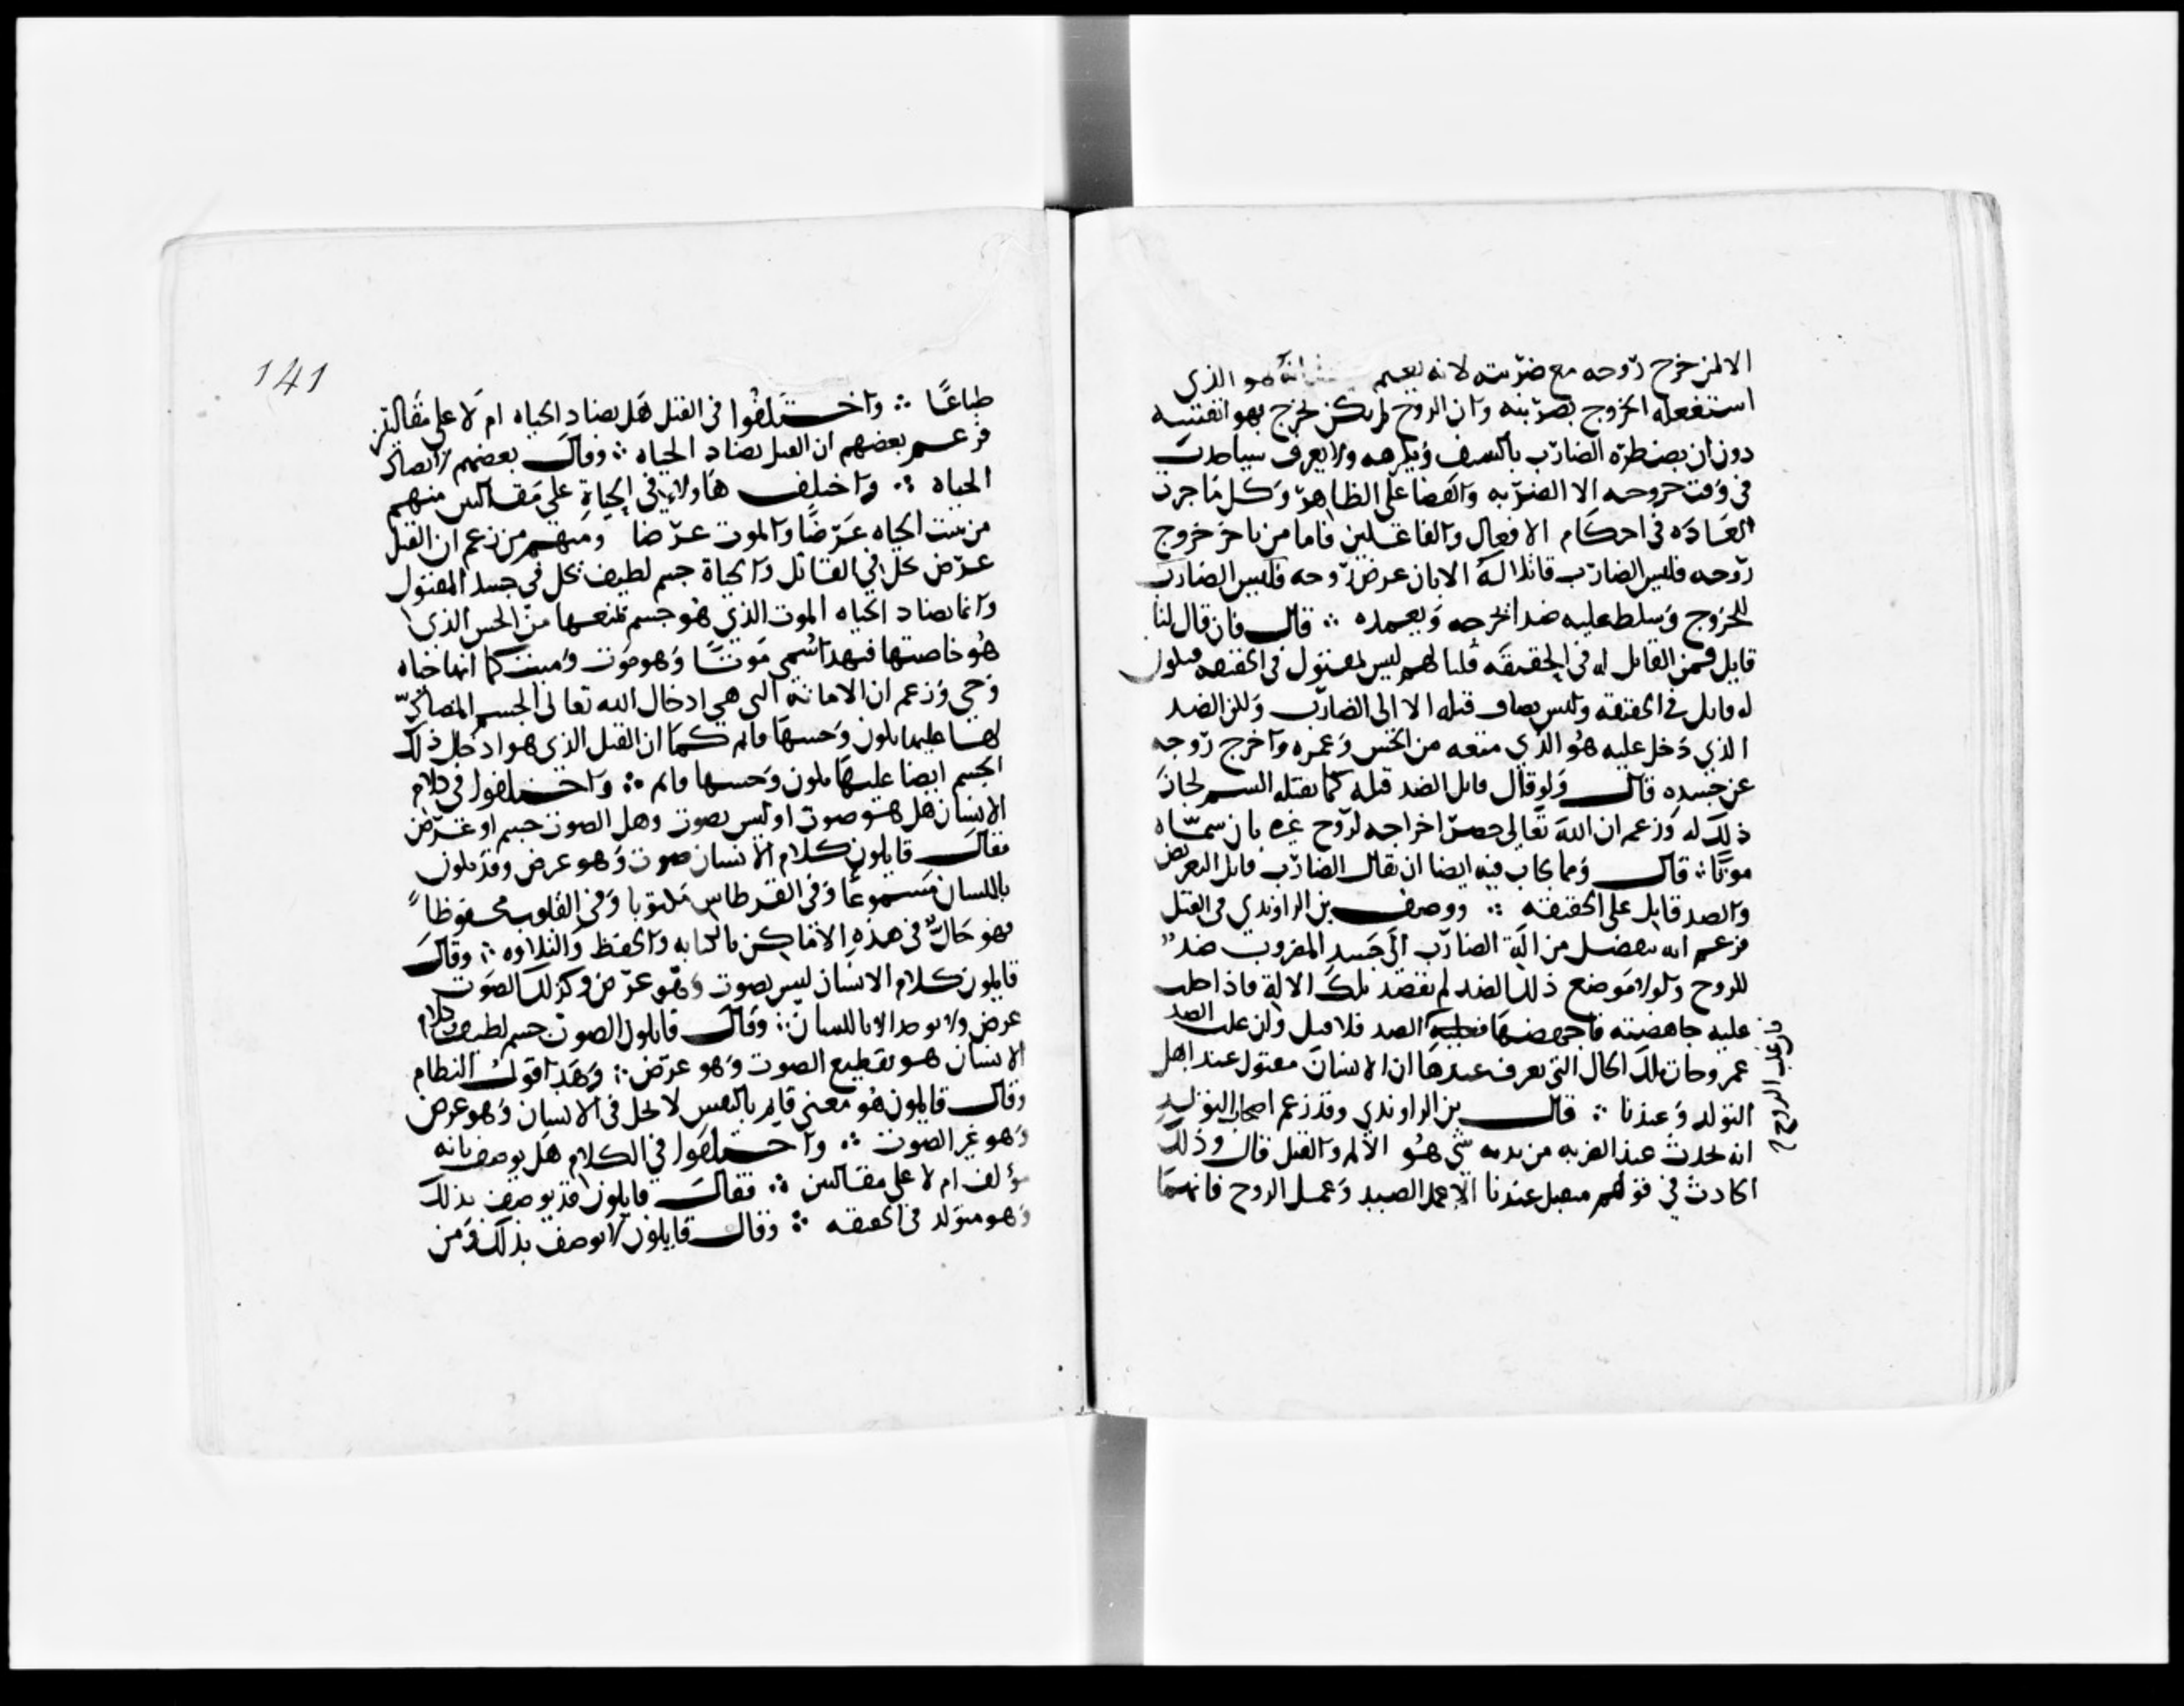 الا لمن خرج روحه مع ضربته لانه يعلم هو الذي
استفعله الخروج بضربته وان الروح لم يكن يخرج بهوا نفسه
دون ان يضطره الضارب بالسيف ويكرهه ولا يعرف سببا حدث
في وقت خروجه الا الضربه والقضا على الظاهر وكل ما جرت
العاده في احكام الافعال والفاعلين فاما من تاخر خروج
روحه فليس الضارب قاتلا له الا بان عرض روحه فليس الضارب
للخروج وسلط عليه ضدا يخرجه ويعمده ∴ قال فان قال لنا
قايل فمن القاتل له في الحقيقه قلنا لهم ليس لمقتول في الحقيقه فيكون
له قاتل في الحقيقه وليس يضاف قتله الا الى الضارب ولكن الضد
الذي دخل عليه هو الذي منعه من الحس وغمره واخرج روحه
عن جسده قال ولو قال قايل الضد قتله كما يقتله السم لجاز
ذلك له وزعم ان الله تعالى خص اخراجه لروح غيره بان سماه
موتا ∴ قال ومما يجاب فيه ايضا ان يقال الضارب قاتل بالتعريض
والضد قاتل على الحقيقه ∴ ووصف بن الراوندي في القتل
فزعم انه ينفصل من الة الضارب الى جسد المضروب ضد
للروح ولولا موضع ذلك الضد لم تقصد تلك الالة فاذا حلت
عليه جاهضته فاجهضها فغلبه الضد فلا قتل وان غلب الضد
غمر وحاتلك الحال التي يعرف عندها ان الانسان مقتول عند اهل
التولد وعندنا ∴ قال بن الراوندي وقد زعم اصحاب التولد
انه يحدث عند الضربه من بدنه شي هو الالم والقتل قال وذلك
الحادث في قولهم منعل عندنا الا عمل الضد وعمل الروح فانهما
فان غلب الروح
141
طباعا ∴ واختلفوا في القتل هل يضاد الحياه ام لا على مقالتين
فزعم بعضهم ان القتل يضاد الحياه ∴ وقال بعضهم لا يضاد
الحياه ∴ واختلف هاولاء في الحياة على مقالتين منهم
من يثبت الحياه عرضا والموت عرضا ومنهم من زعم ان القتل
عرض يحل في القاتل والحياة جسم لطيف يحل في جسد المقتول
وانما يضاد الحياه الموت الذي هو جسم يمنعها من الحس الذي
هو خاصتها فبهذا سمى موتا وهو موت وميت كما انها حياه
وحي وزعم ان الاماتة التي هي ادخال الله تعالى الجسم المضاد
لها عليها يكون وحسها قايم كما ان القتل الذي هو ادخال ذلك
الجسم ايضا عليها يكون وحسها قايم ∴ واختلفوا في كلام
الانسان هل هو صوت او ليس بصوت وهل الصوت جسم او عرض
فقال قايلون كلام الانسان صوت وهو عرض وقد يكون
باللسان مسموعا وفي القرطاس مكتوبا وفي القلوب محفوظا
فهو حال في هذه الاماكن بالكتابه والحفظ والتلاوه ∴ وقال
قايلون كلام الانسان ليس بصوت وهو عرض وكذلك الصوت
عرض ولا يوجد الا باللسان ∴ وقال قايلون الصوت جسم لطيف وكلام
الانسان هو تقطيع الصوت وهو عرض ∴ وهذا قول النظام
وقال قايلون هو معنى قايم بالنفس لا يحل في الانسان وهو عرض
وهو غير الصوت ∴ واختلفوا في الكلام هل يوصف بانه
مؤلف ام لا على مقالتين ∴ فقال قايلون قد يوصف بذلك
وهو متولد في الحقيقه ∴ وقال قايلون لا يوصف بذلك ومن